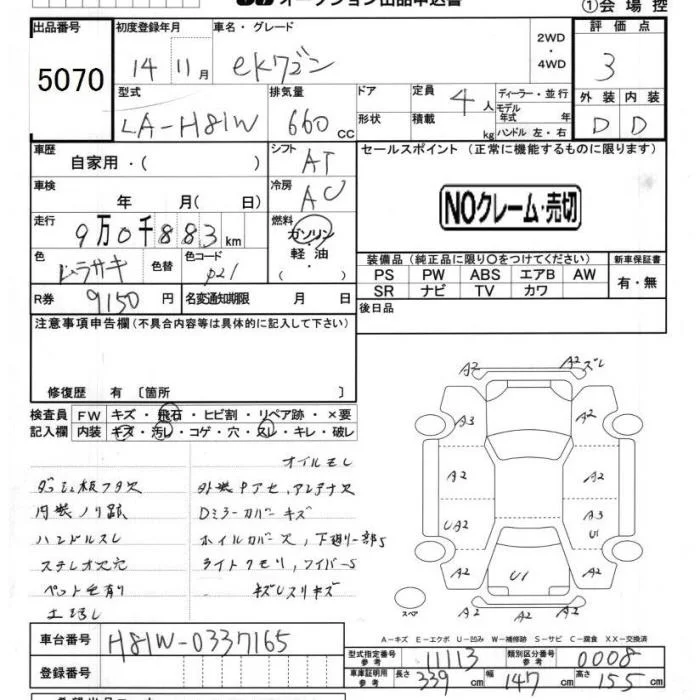 ①会 場 控
出品番号
5070
初度登録年月
14年11月
車名・グレード
ekワゴン
2WD
・
4WD
評 価 点
3
外 装 内 装
D D
型式
LA-H81W
排気量
660cc
ドア
形状
定員 4人
積載 kg
ディーラー・並行
モデル年式 年
ハンドル 左・右
車歴
自家用・( )
シフト AT
セールスポイント (正常に機能するものに限ります)
NOクレーム・売切
車検
年 月( 日)
冷房 AC
走行
9万0千883km
燃料
ガソリン
軽 油
・( )
色
ムラサキ
色替
色コード
P21
装備品 (純正品に限り○をつけてください)
新車保証書
PS PW ABS エアB AW
有・無
SR ナビ TV カワ
R券 9150円
名変通知期限 月 日
後日品
注意事項申告欄 (不具合内容等は具体的に記入して下さい)
修復歴 有 〔箇所 〕
検査員
記入欄
FW キズ・飛石・ヒビ割・リペア跡・×要
内装 キズ・汚レ・コゲ・穴・スレ・キレ・破レ
オイルモレ
ダッシュ板フタ欠
内装ノリ跡
ハンドルスレ
ステレオ欠穴
ペット毛有り
外装色アセ、アンテナ欠
Dミラーカバーキズ
ホイルカバー欠、下廻り一部S
ライトクモリ、ワイパーS
キズUスリキズ
A2 A2 ズレ
A3 A2
A2 A2
UA2 A3 U1
A2 U1 A2
A2 A2
スペ
A-キズ E-エクボ U-凹み W-補修跡 S-サビ C-腐食 XX-交換済
車台番号 H81W-0337165
型式指定番号 参考 11113
類別区分番号 参考 0008
登録番号
車庫証明用 参考 長さ 339cm 幅 147cm 高さ 155cm